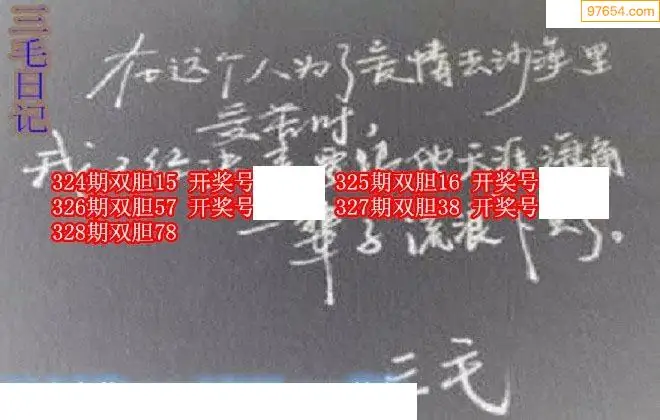 三毛日记
97654.com
在这个人为了爱情去沙漠里
受苦时,
我 已经决 要 他天涯海角
324期双胆15 开奖号
325期双胆16 开奖号
326期双胆57 开奖号
327期双胆38 开奖号
328期双胆78
一辈子流浪下去了。
三毛